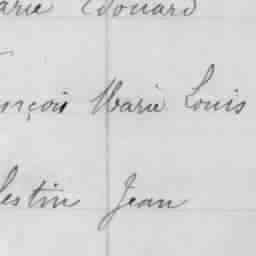 arie Edouard
ançois Marie Louis
lestin Jean